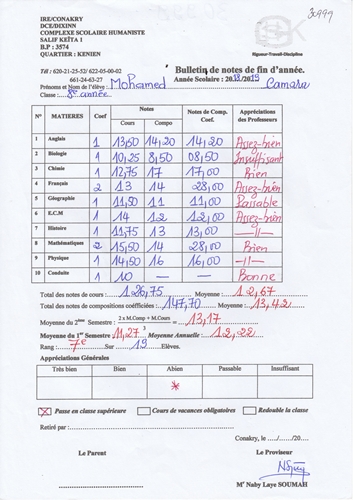 30999
IRE/CONAKRY
DCE/DIXINN
COMPLEXE SCOLAIRE HUMANISTE
SALIF KEÏTA 1
B.P : 3574
QUARTIER : KENIEN
Rigueur-Travail-Discipline
Tél : 620-21-25-52/ 622-05-00-02
661-24-63-27
Bulletin de notes de fin d'année.
Année Scolaire : 2018/2019
Prénoms et Nom de l'élève : Mohamed Camara
Classe : 8e année
N° MATIERES Coef Notes Notes de Comp. Coef. Appréciations des Professeurs
Cours Compo
1 Anglais 1 13,50 14,20 14,20 Assez-bien
2 Biologie 1 10,25 8,50 08,50 Insuffisant
3 Chimie 1 12,75 17 17,00 Bien
4 Français 2 13 14 28,00 Assez-bien
5 Géographie 1 11,50 11 11,00 Passable
6 E.C.M 1 14 12 12,00 Assez-bien
7 Histoire 1 11,75 13 13,00 -//-
8 Mathématiques 2 15,50 14 28,00 Bien
9 Physique 1 14,50 16 16,00 -//-
10 Conduite 1 10 — — Bonne
Total des notes de cours : 126,75 Moyenne : 12,67
Total des notes de compositions coefficiées : 147,70 Moyenne : 13,42
Moyenne du 2ème Semestre : 2 x M.Comp + M.Cours = 13,17
3
Moyenne du 1er Semestre : 11,27 Moyenne Annuelle : 12,22
Rang : 7e Sur 19 Elèves.
Appréciations Générales
Très bien Bien Abien Passable Insuffisant
Passe en classe supérieure Cours de vacances obligatoires Redouble la classe
Retiré par :
Conakry, le ..../....../20....
Le Parent Le Proviseur
Mr Naby Laye SOUMAH